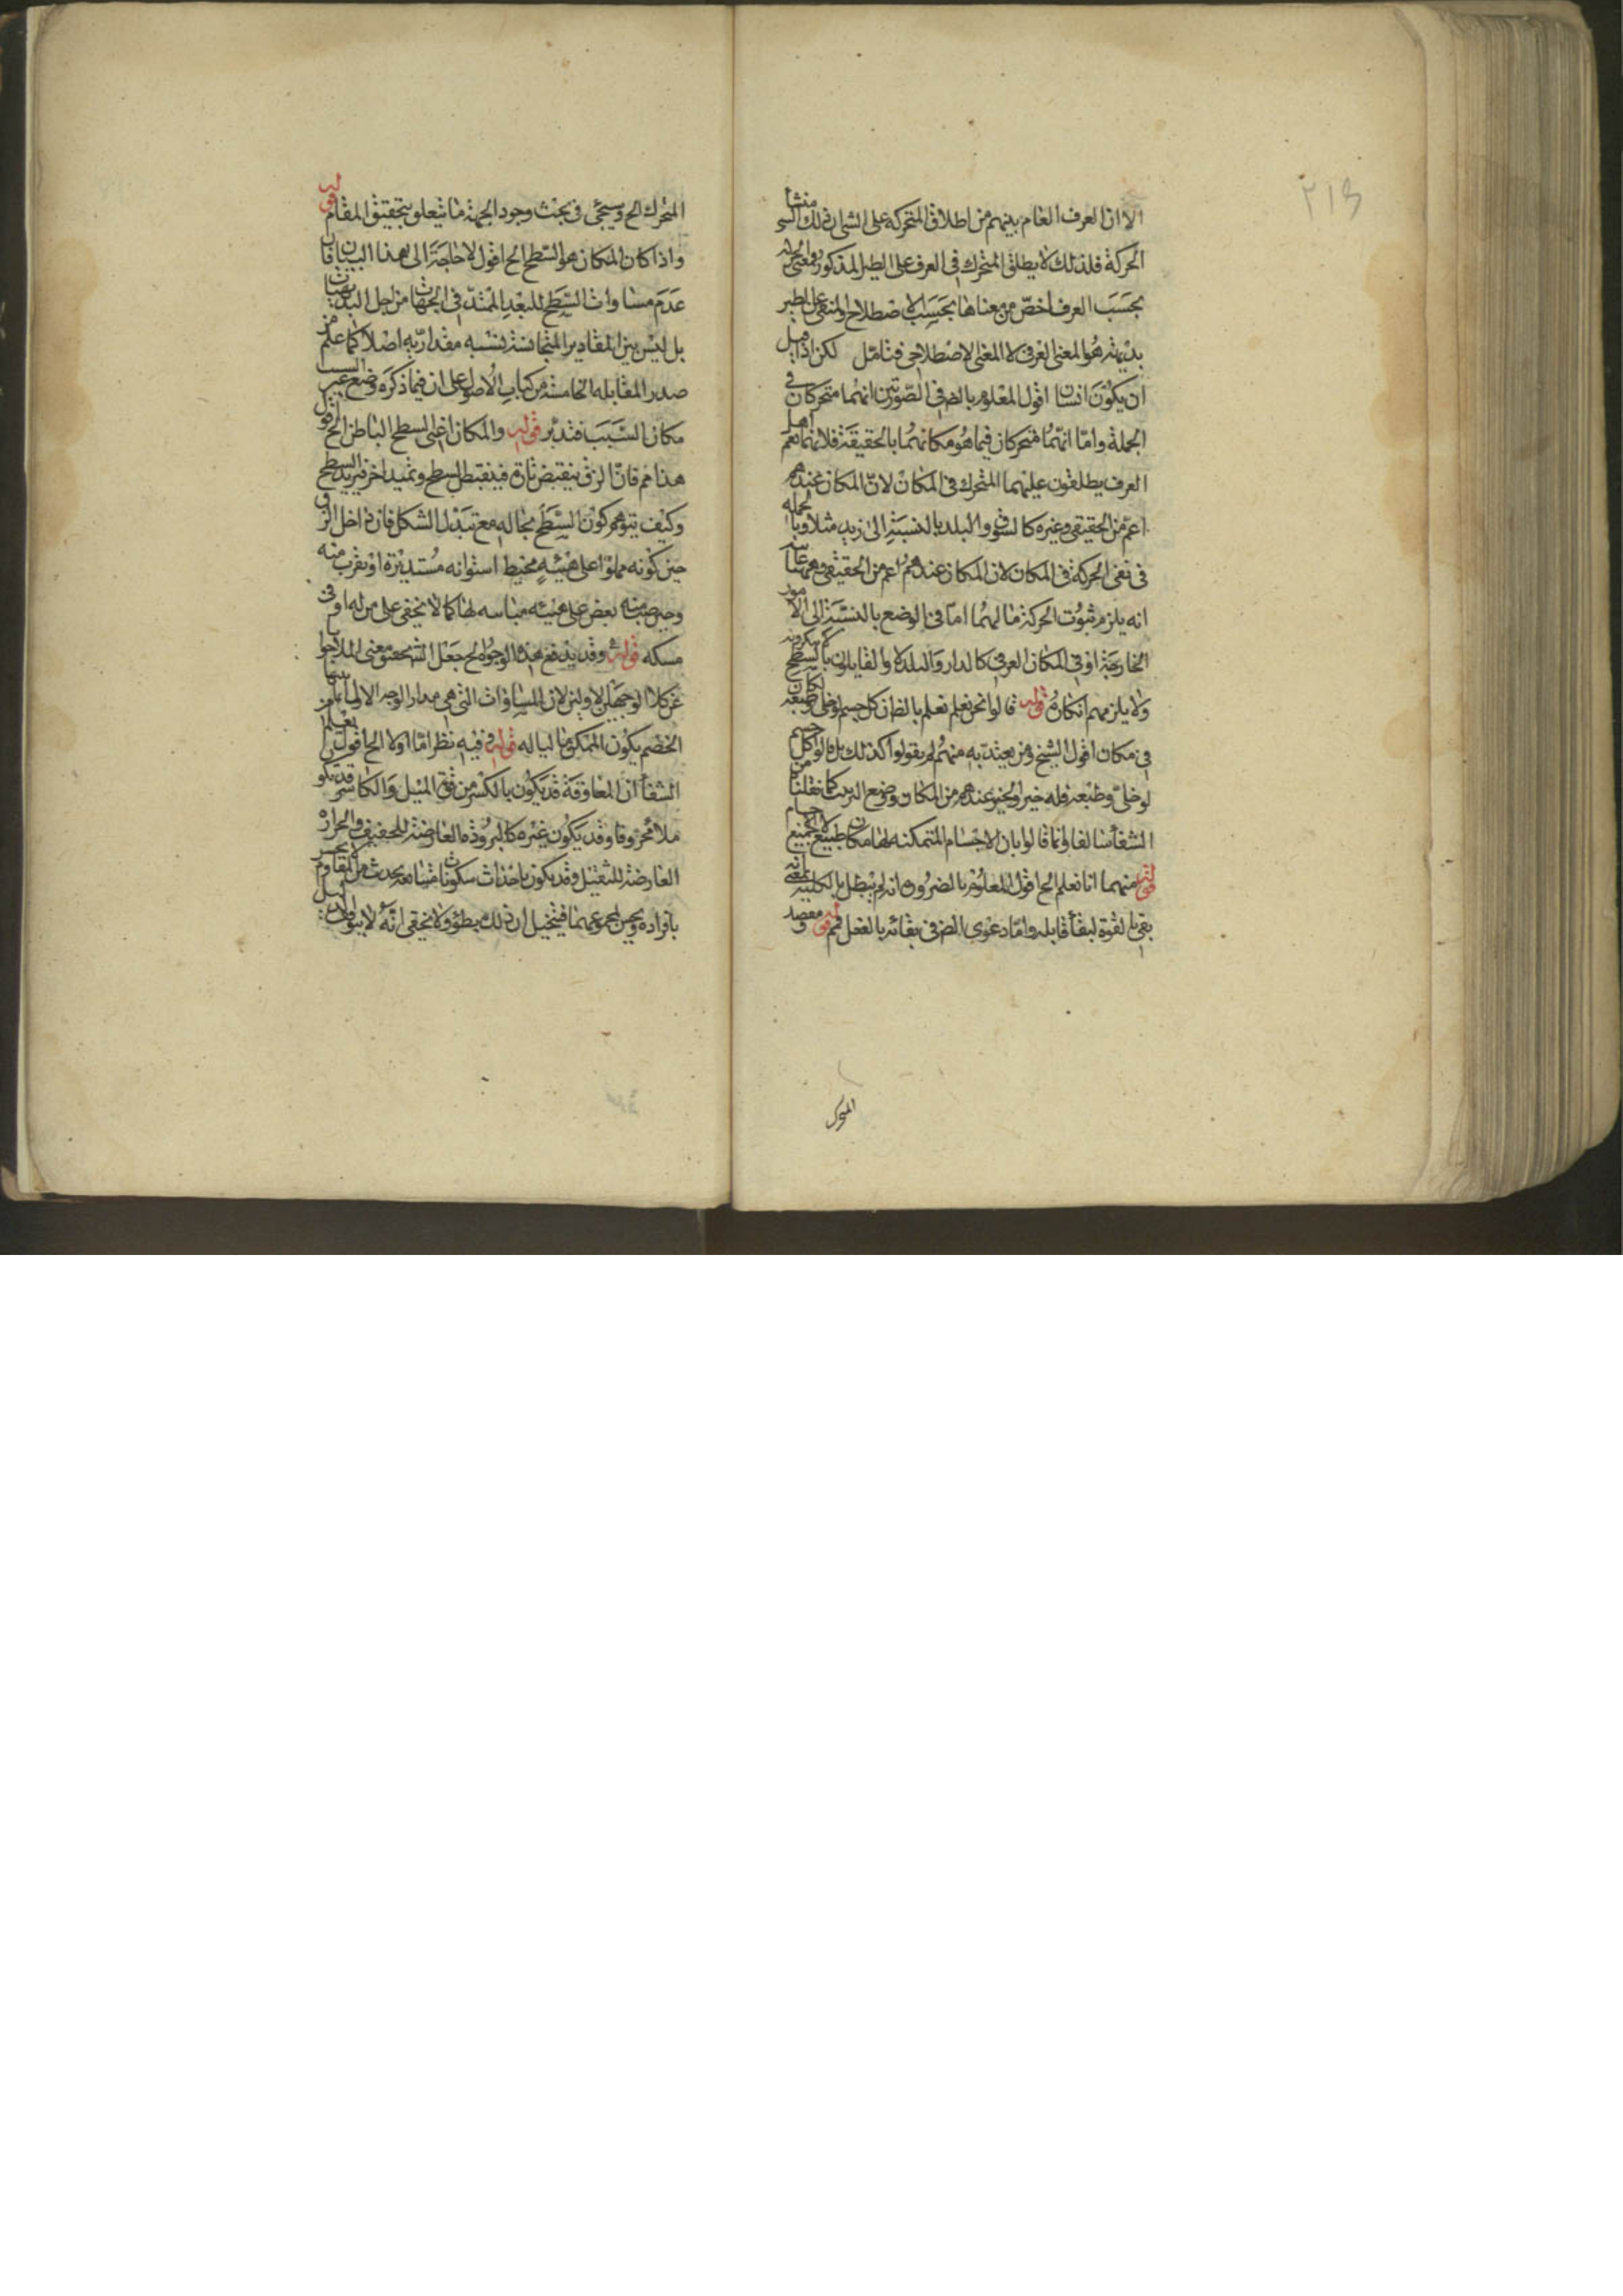 ٢١٣
الا ان العرف العام بينهم من اطلاق المتحركة على الشئ ان ذلك الشئ منشأ
الحركة فلذلك لا يطلق المتحرك في العرف على الطير المذكور ومعنى الحركة
بحسب العرف اخص من معناها بحسب الاصطلاح والمنفى على الطير
بديهة هو المعنى العرفى لا المعنى الاصطلاحى فتامل لكن اذا قيل
ان يكون انسان اقول المعلوم بالضـ فى الصورتين انهما متحركان فى
الجملة واما انهما متحركان فيما هو مكانهما بالحقيقة فلا نعم اهل
العرف يطلقون عليهما المتحرك فى المكان لان المكان عندهم
اعم من الحقيقى وغيره كالسوق والبلد بالنسبة الى زيد مثلا وبالجملة
فى نفى الحركة فى المكان لان المكان عندهم اعم من الحقيقى وههنا
انه يلزم ثبوت الحركة ما لهما اما فى الوضع بالنسبة الى الامور
الخارجة او فى المكان العرفى كالدار والبلد والقايلون بالسطح لا ينكرونه
ولا يلزمهم انكاره قوله قالوا نحن نعلم بالضـ ان كل جسم لو خلى وطبعه لكان
فى مكان اقول الشيخ ومن يعتد به منهم لم يقولوا كذلك بل قالوا كل جسم
لو خلى وطبعه فله حيز والحيز عندهم من المكان ووضع الترتيب كما نقلنا من
الشفأ سالفا وانما قالوا بان الاجسام المتمكنه لها مكان طبيعى لا لجميع الاجسام
قوله منهما انا نعلم الخ اقول المعلوم بالضرورة انه لم يبطل بالكلية بمعنى انه
بقى بالقوة لبقأ قابله واما دعوى الضـ فى بقائه بالفعل فمم قوله ومقصد
المتحرك
المتحرك الخ وسيجئ فى بحث وجود الجهة ما يتعلق بتحقيق المقام قوله
واذا كان المكان هو السطح الخ اقول لا حاجة الى هذا البيان فان
عدم مساواة السطح للبعد الممتد فى الجهات من اجل البديهيات
بل ليس بين المقادير المتجانسة نسبه مقداريه اصلا كما علم من
صدر المقابله الخامسة من كتاب الاصول على ان فيما ذكره وضع غير السبب
مكان السبب فتدبر قوله والمكان اعنى السطح الباطن الخ اقول
هذا مم فان الزق ينقبض تارة فينقبض السطح ويمتد اخرى فيزيد السطح
وكيف يتوهم كون السطح بحاله مع تبدل الشكل فان داخل الزق
حين كونه مملوا على هيئه محيط اسطوانه مستديرة او يقرب منه
وحين صب منه بعض على هيئه مباينه لها كما لا يخفى على من له ادنى
مسكه قوله وقد يدفع هذه الوجوه الخ جعل الشـ محقق معنى الجواب
عن كلا الوجهين الاولين لان المساواة التى هى مدار الوجه الاول
الخصم يكون المتمكن ماليا له قوله وفيه نظر اما اولا الخ اقول
الشفأ ان المعاوقة قد يكون بالكسر من فوق الميل والكاسر قد يكون
ملاء مخروقا وقد يكون غيره كالبرودة العارضة للخفيف والحرارة
العارضة للثقيل وقد يكون باحداث سكونات
بافراده ويحس بمجموعهما فيتخيل ان ذلك بطؤ ولا يخفى انه لا